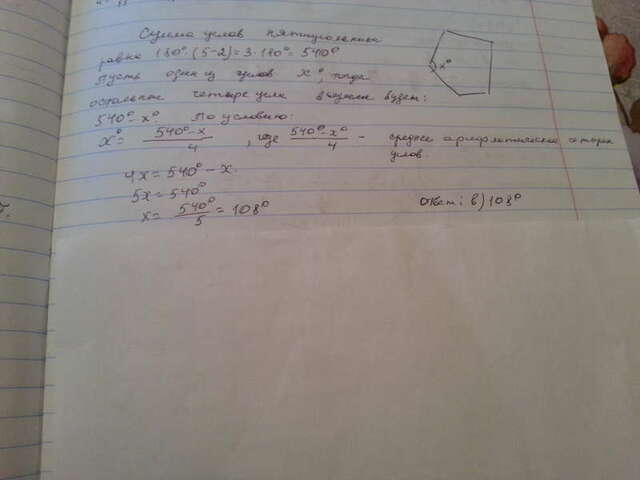 Сумма углов пятиугольника
равна 180°·(5-2)=3·180°=540°
Пусть один из углов x°, тогда
остальные четыре угла в сумме будет:
540°-x° По условию:
x° = 540°-x / 4 , где 540°-x° / 4 - среднее арифметическое четырёх
углов.
4x = 540° - x
5x = 540°
x = 540° / 5 = 108°
Ответ: в) 108°
x°